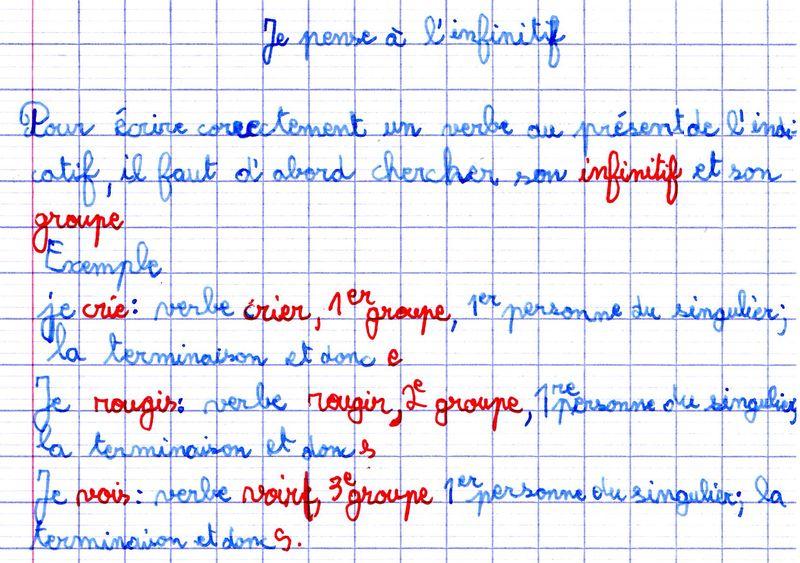 Je pense à l'infinitif
Pour écrire correctement un verbe au présent de l'indi-
catif, il faut d'abord chercher son infinitif et son
groupe
Exemple
je crie: verbe crier, 1er groupe, 1er personne du singulier;
la terminaison et donc e
Je rougis: verbe rougir, 2e groupe, 1re personne du singulier,
la terminaison et donc s
Je vois: verbe voir, 3e groupe 1er personne du singulier; la
terminaison et donc s.